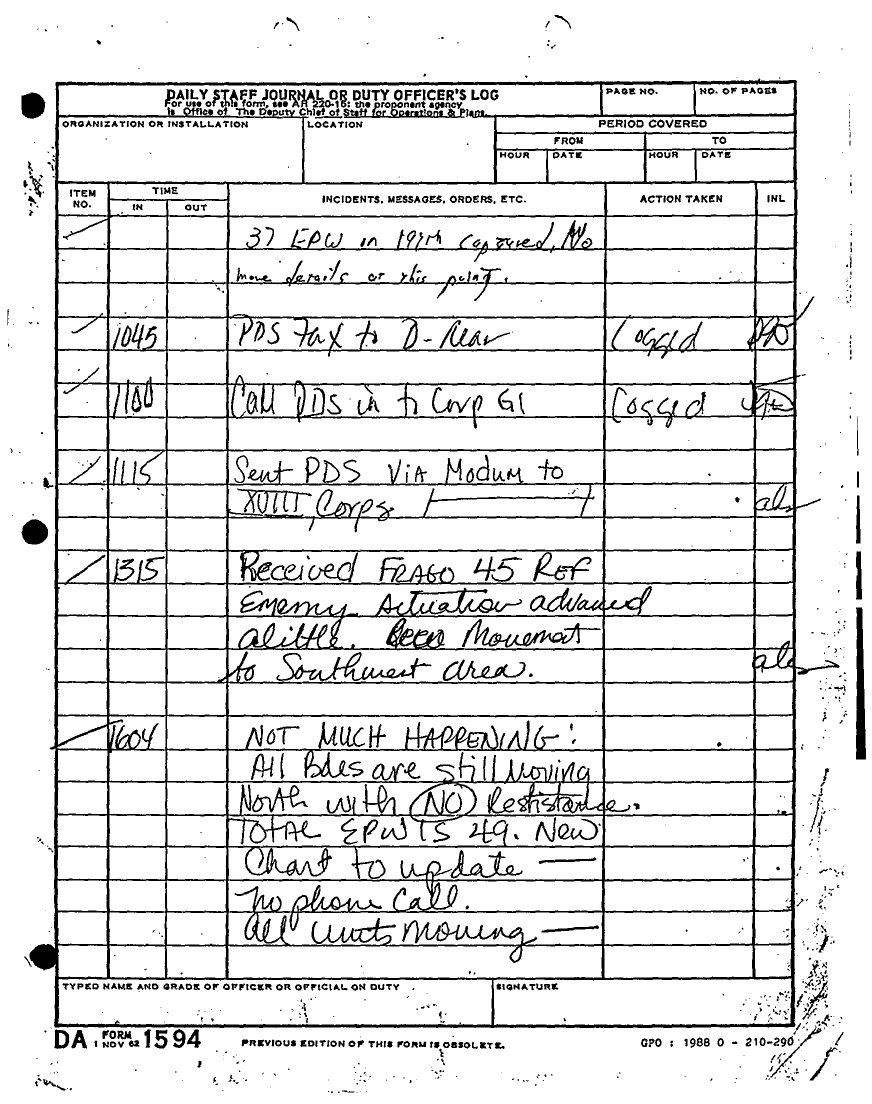 DAILY STAFF JOURNAL OR DUTY OFFICER'S LOG
For use of this form, see AR 220-15; the proponent agency
is Office of The Deputy Chief of Staff for Operations & Plans.
PAGE NO.
NO. OF PAGES
ORGANIZATION OR INSTALLATION
LOCATION
PERIOD COVERED
FROM
TO
HOUR
DATE
HOUR
DATE
ITEM NO.
TIME
IN
OUT
INCIDENTS, MESSAGES, ORDERS, ETC.
ACTION TAKEN
INL
37 EPW in 197th captured, No
more details at this point.
1045 PDS Fax to D-Rear Logged
1100 Call PDS in to Corp G1 Logged
1115 Sent PDS Via Modum to
XVIII Corps
1315 Received FRAGO 45 REF
Enemy Actuation advanced
alittle. Movement
to Southwest area.
1604 NOT MUCH HAPPENING:
All Bdes are still Moving
North with NO Restistance.
TOTAL EPW IS 49. New
Chart to update —
no phone call.
All units moving —
TYPED NAME AND GRADE OF OFFICER OR OFFICIAL ON DUTY
SIGNATURE
DA FORM 1 NOV 62 1594
PREVIOUS EDITION OF THIS FORM IS OBSOLETE.
GPO : 1988 O - 210-290